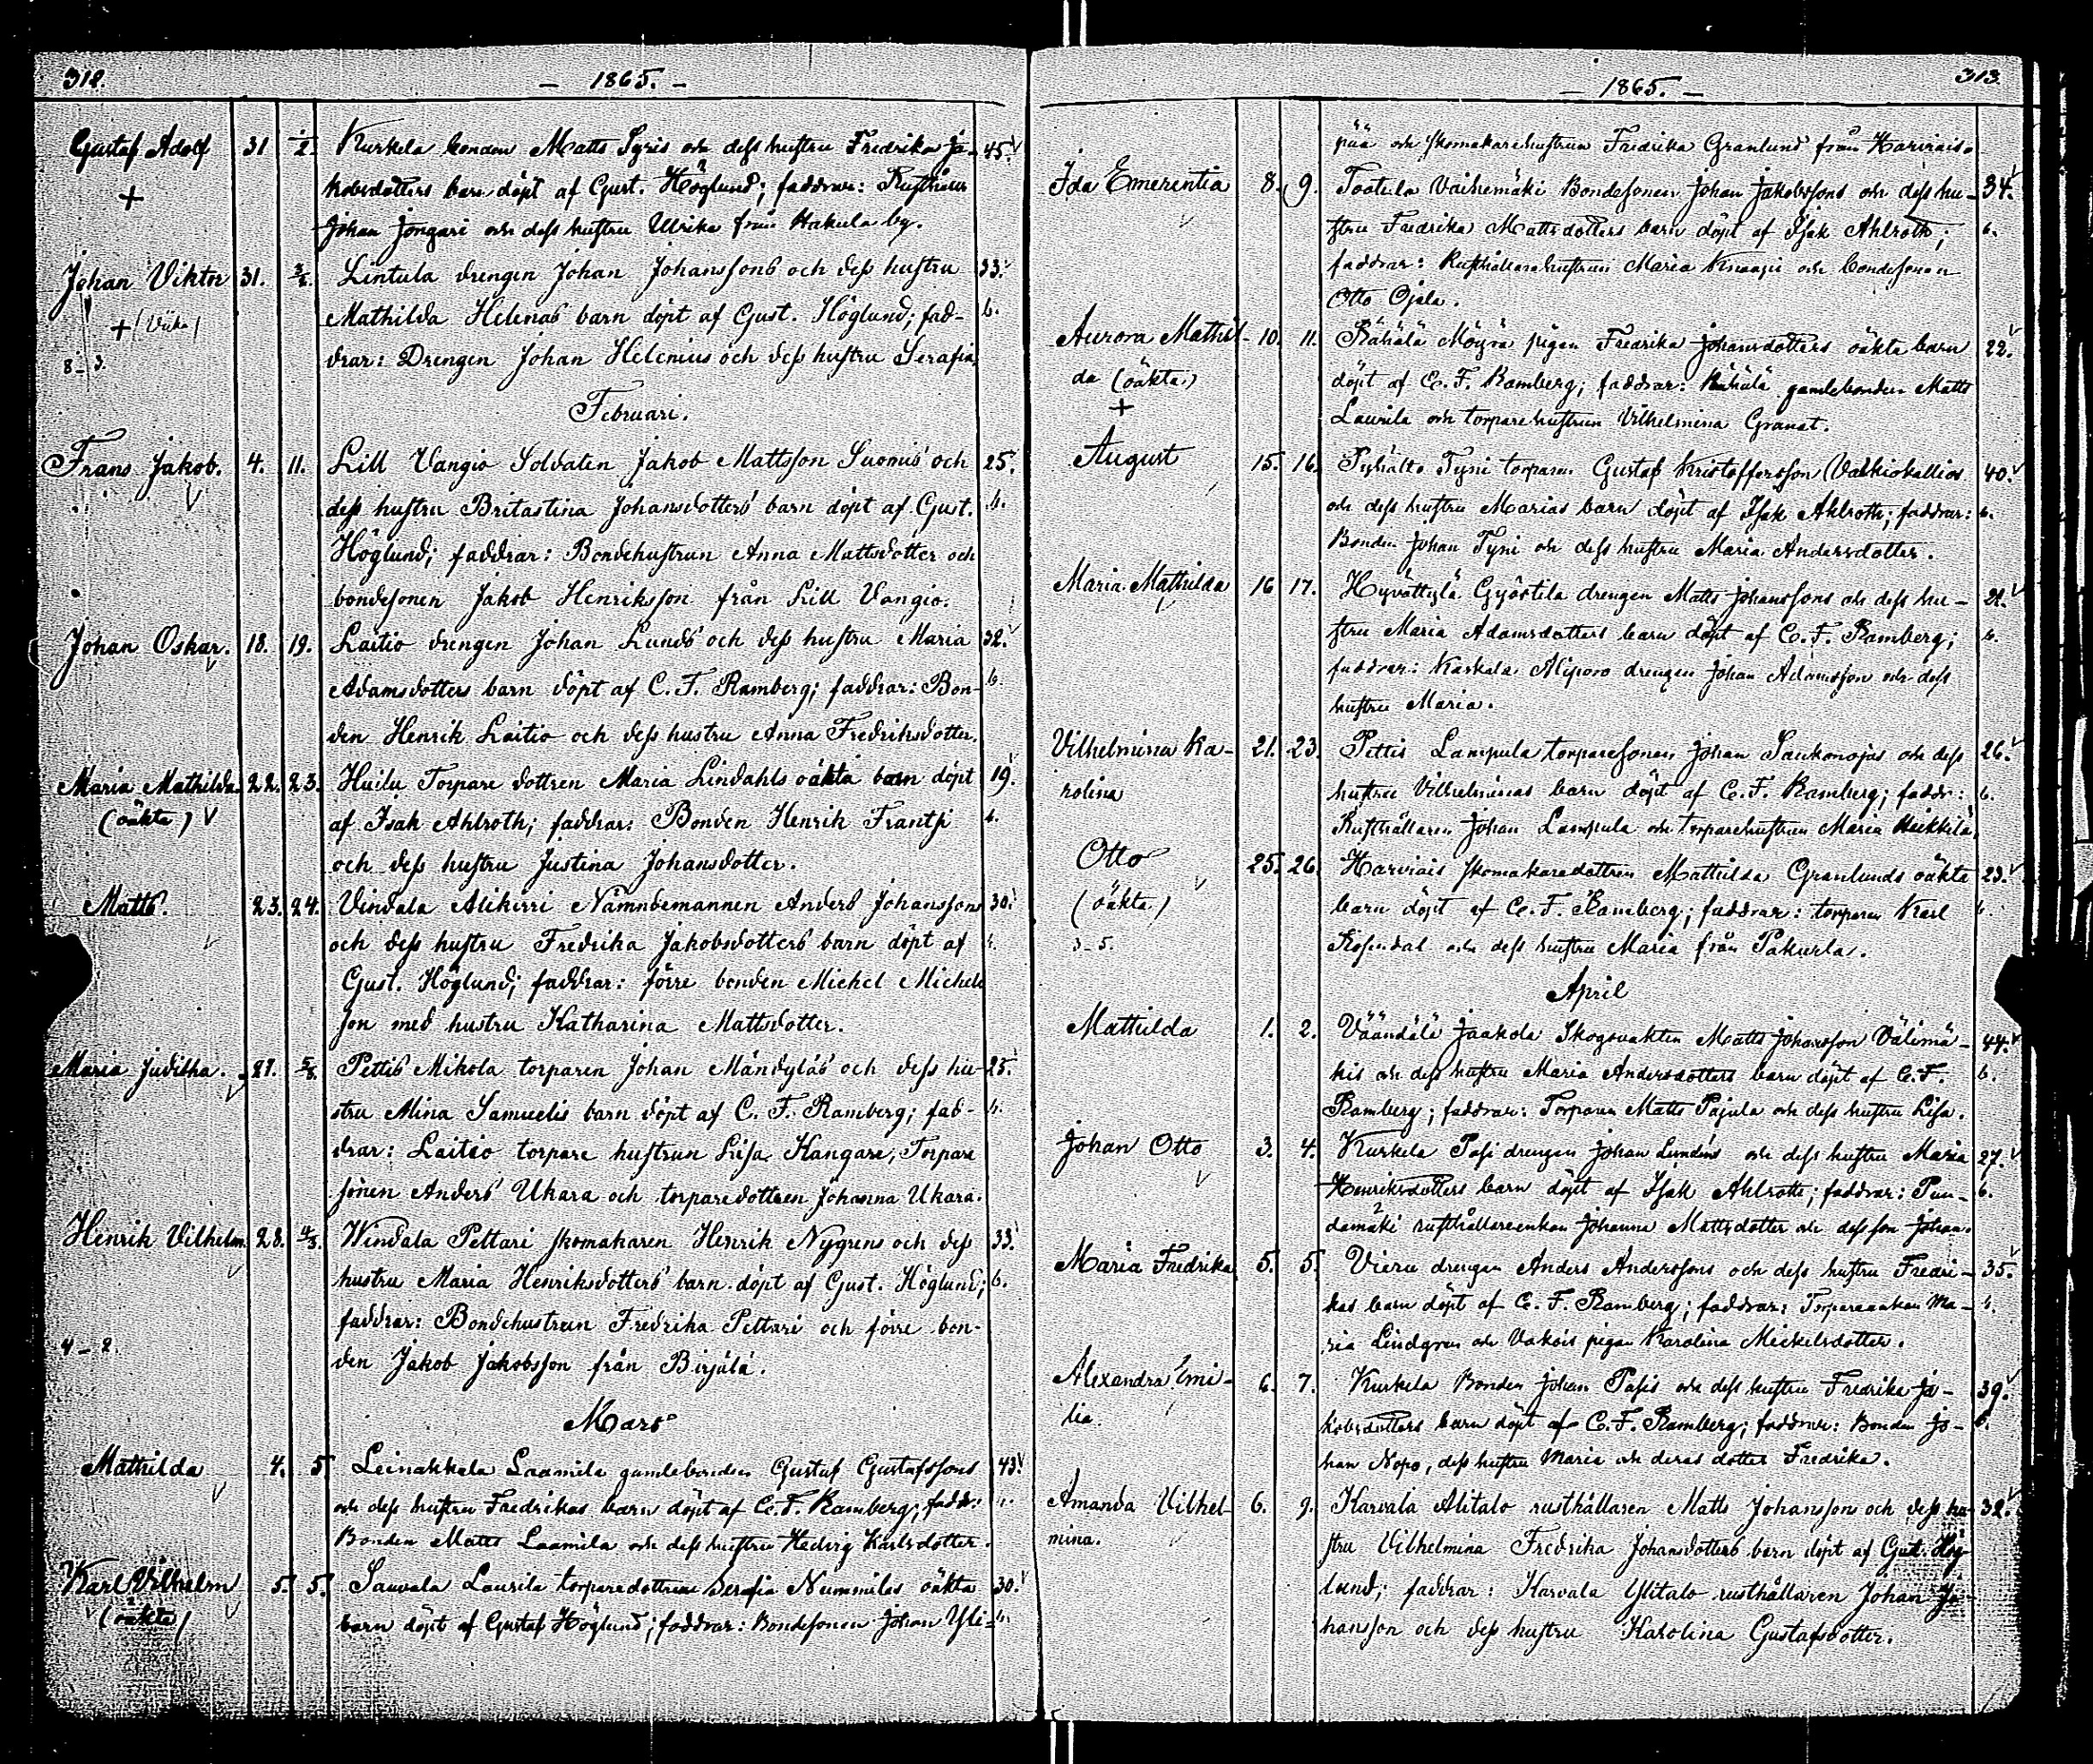 312.
— 1865. —
Gustaf Adolf 31 1/2. Kurkela bonden Matts Syris och dess hustru Fredrika Ja- 45.
+ kobsdotters barn döpt af Gust. Höglund; faddrar: Rusthållaren
Johan Jongari och dess hustru Ulrika från Hakula by.
Johan Viktor 31. 3/2. Lintula drengen Johan Johanssons och dess hustru 33.
+ Mathilda Helenas barn döpt af Gust. Höglund; fad- b.
8-3. drar: Drengen Johan Helenius och dess hustru Serafia.
Februari.
Frans Jakob. 4. 11. Lill Vangio Soldaten Jakob Mattsson Suomis och 25.
dess hustru Britastina Johansdotters barn döpt af Gust. b.
Höglund; faddrar: Bondehustrun Anna Mattsdotter och
bondesonen Jakob Henriksson från Lill Vangio.
Johan Oskar. 18. 19. Laitio drengen Johan Lunds och dess hustru Maria 32.
Adamsdotters barn döpt af C. F. Ramberg; faddrar: Bon- b.
den Henrik Laitio och dess hustru Anna Fredriksdotter.
Maria Mathilda. 22. 23. Huilu Torpare dottren Maria Lindahls oäkta barn döpt 19.
(oäkta) af Isak Ahlroth; faddrar: Bonden Henrik Frantsi b.
och dess hustru Justina Johansdotter.
Matts. 23. 24. Vindala Alikirri Nämndemannen Anders Johanssons 30.
och dess hustru Fredrika Jakobsdotters barn döpt af b.
Gust. Höglund; faddrar: förre bonden Michel Michels
son med hustru Katharina Mattsdotter.
Maria Juditha. 27. 5/3. Pettis Mikola torparen Johan Mändyläs och dess hu- 25.
stru Mina Samuelis barn döpt af C. F. Ramberg; fad- b.
drar: Laitio torpare hustrun Lisa Kangare, Torpare
sönen Anders Ukara och torparedottren Johanna Ukara.
Henrik Vilhelm. 28. 4/3. Windala Pettari skomakaren Henrik Nygrens och dess 33.
hustru Maria Henriksdotters barn döpt af Gust. Höglund; b.
faddrar: Bondehustrun Fredrika Pettari och förre bon-
4-2. den Jakob Jakobsson från Birjälä.
Mars
Mathilda 4. 5. Leinakkala Laamila gamlebonden Gustaf Gustafssons 43.
och dess hustru Fredrikas barn döpt af C. F. Ramberg; faddr: b.
Bonden Matts Laamila och dess hustru Hedvig Karlsdotter.
Karl Vilhelm 5. 5. Sauvala Laurila torparedottren Serafia Nummilas oäkta 30.
(oäkta) barn döpt af Gustaf Höglund; faddrar: Bondesonen Johan Yli- b.
313.
— 1865. —
pää och skomakarehustrun Fredrika Granlund från Harviais.
Ida Emerentia 8. 9. Tootula Vaihemäki Bondesonen Johan Jakobssons och dess hu- 34.
stru Fredrika Mattsdotters barn döpt af Isak Ahlroth; b.
faddrar: Rusthållarehustrun Maria Knaapi och bondesonen
Otto Ojala.
Aurora Mathil- 10. 11. Rähälä Möyrä pigan Fredrika Johansdotters oäkta barn 22.
da (oäkta) döpt af C. F. Ramberg; faddrar: Rähälä gamlebonden Matts
+ Laurila och torparehustrun Vilhelmina Granat.
August 15. 16. Pyhälto Tyni torparen Gustaf Kristofferson Valkiokallios 40.
och dess hustru Marias barn döpt af Isak Ahlroth; faddrar: b.
Bonden Johan Tyni och dess hustru Maria Andersdotter.
Maria Mathilda 16 17. Hyvättylä Gyöstilä drengen Matts Johanssons och dess hu- 21.
stru Maria Adamsdotters barn döpt af C. F. Ramberg; b.
faddrar: Kaskala Aliporo drengen Johan Adamsson och dess
hustru Maria.
Vilhelmina Ka- 21. 23. Pettis Lampula torparesonen Johan Saukonojas och dess 26.
rolina hustru Vilhelminas barn döpt af C. F. Ramberg; faddr: b.
Rusthållaren Johan Lampula och torparehustrun Maria Heikkilä.
Otto 25. 26. Harviais skomakaredottren Mathilda Granlunds oäkta 23.
(oäkta) barn döpt af C. F. Ramberg; faddrar: torparen Karl b.
3-5. Rosendal och dess hustru Maria från Pakurla.
April
Mathilda 1. 2. Väändälä Jaakola Skogsvakten Matts Johansson Välimä- 44.
kis och dess hustru Maria Andersdotters barn döpt af C. F. b.
Ramberg; faddrar: Torparen Matts Pajula och dess hustru Lisa.
Johan Otto 3. 4. Kurkela Pasi drengen Johan Lundéns och dess hustru Maria 27.
Henriksdotters barn döpt af Isak Ahlroth; faddrar: Pun- b.
damäki rusthållareenkan Johanna Mattsdotter och dess son Johan.
Maria Fredrika 5. 5. Vieru drengen Anders Anderssons och dess hustru Fredri- 35.
kas barn döpt af C. F. Ramberg; faddrar: Torpareenkan Ma- b.
ria Lindgren och Vakois pigan Karolina Mickelsdotter.
Alexandra Emi- 6. 7. Kurkela Bonden Johan Pasis och dess hustru Fredrika Ja- 39.
lia. kobsdotters barn döpt af C. F. Ramberg; faddrar: Bonden Jo- b.
han Nopo, dess hustru Maria och deras dotter Fredrika.
Amanda Vilhel- 6. 9. Karvala Alitalo rusthållaren Matts Johanssons och dess hu- 32.
mina. stru Vilhelmina Fredrika Johansdotters barn döpt af Gust. Hög-
lund; faddrar: Karvala Ylitalo rusthållaren Johan Jo-
hansson och dess hustru Karolina Gustafsdotter.